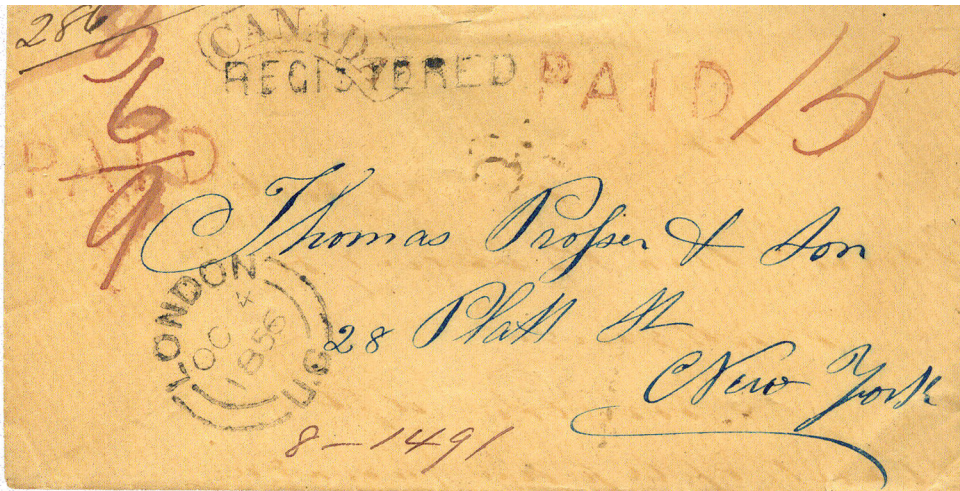 286
CANADA
REGISTERED
PAID
15
3
6
9
PAID
Thomas Prosser & Son
28 Platt St
New York
LONDON
OC 4
1856
U.C
8-1491